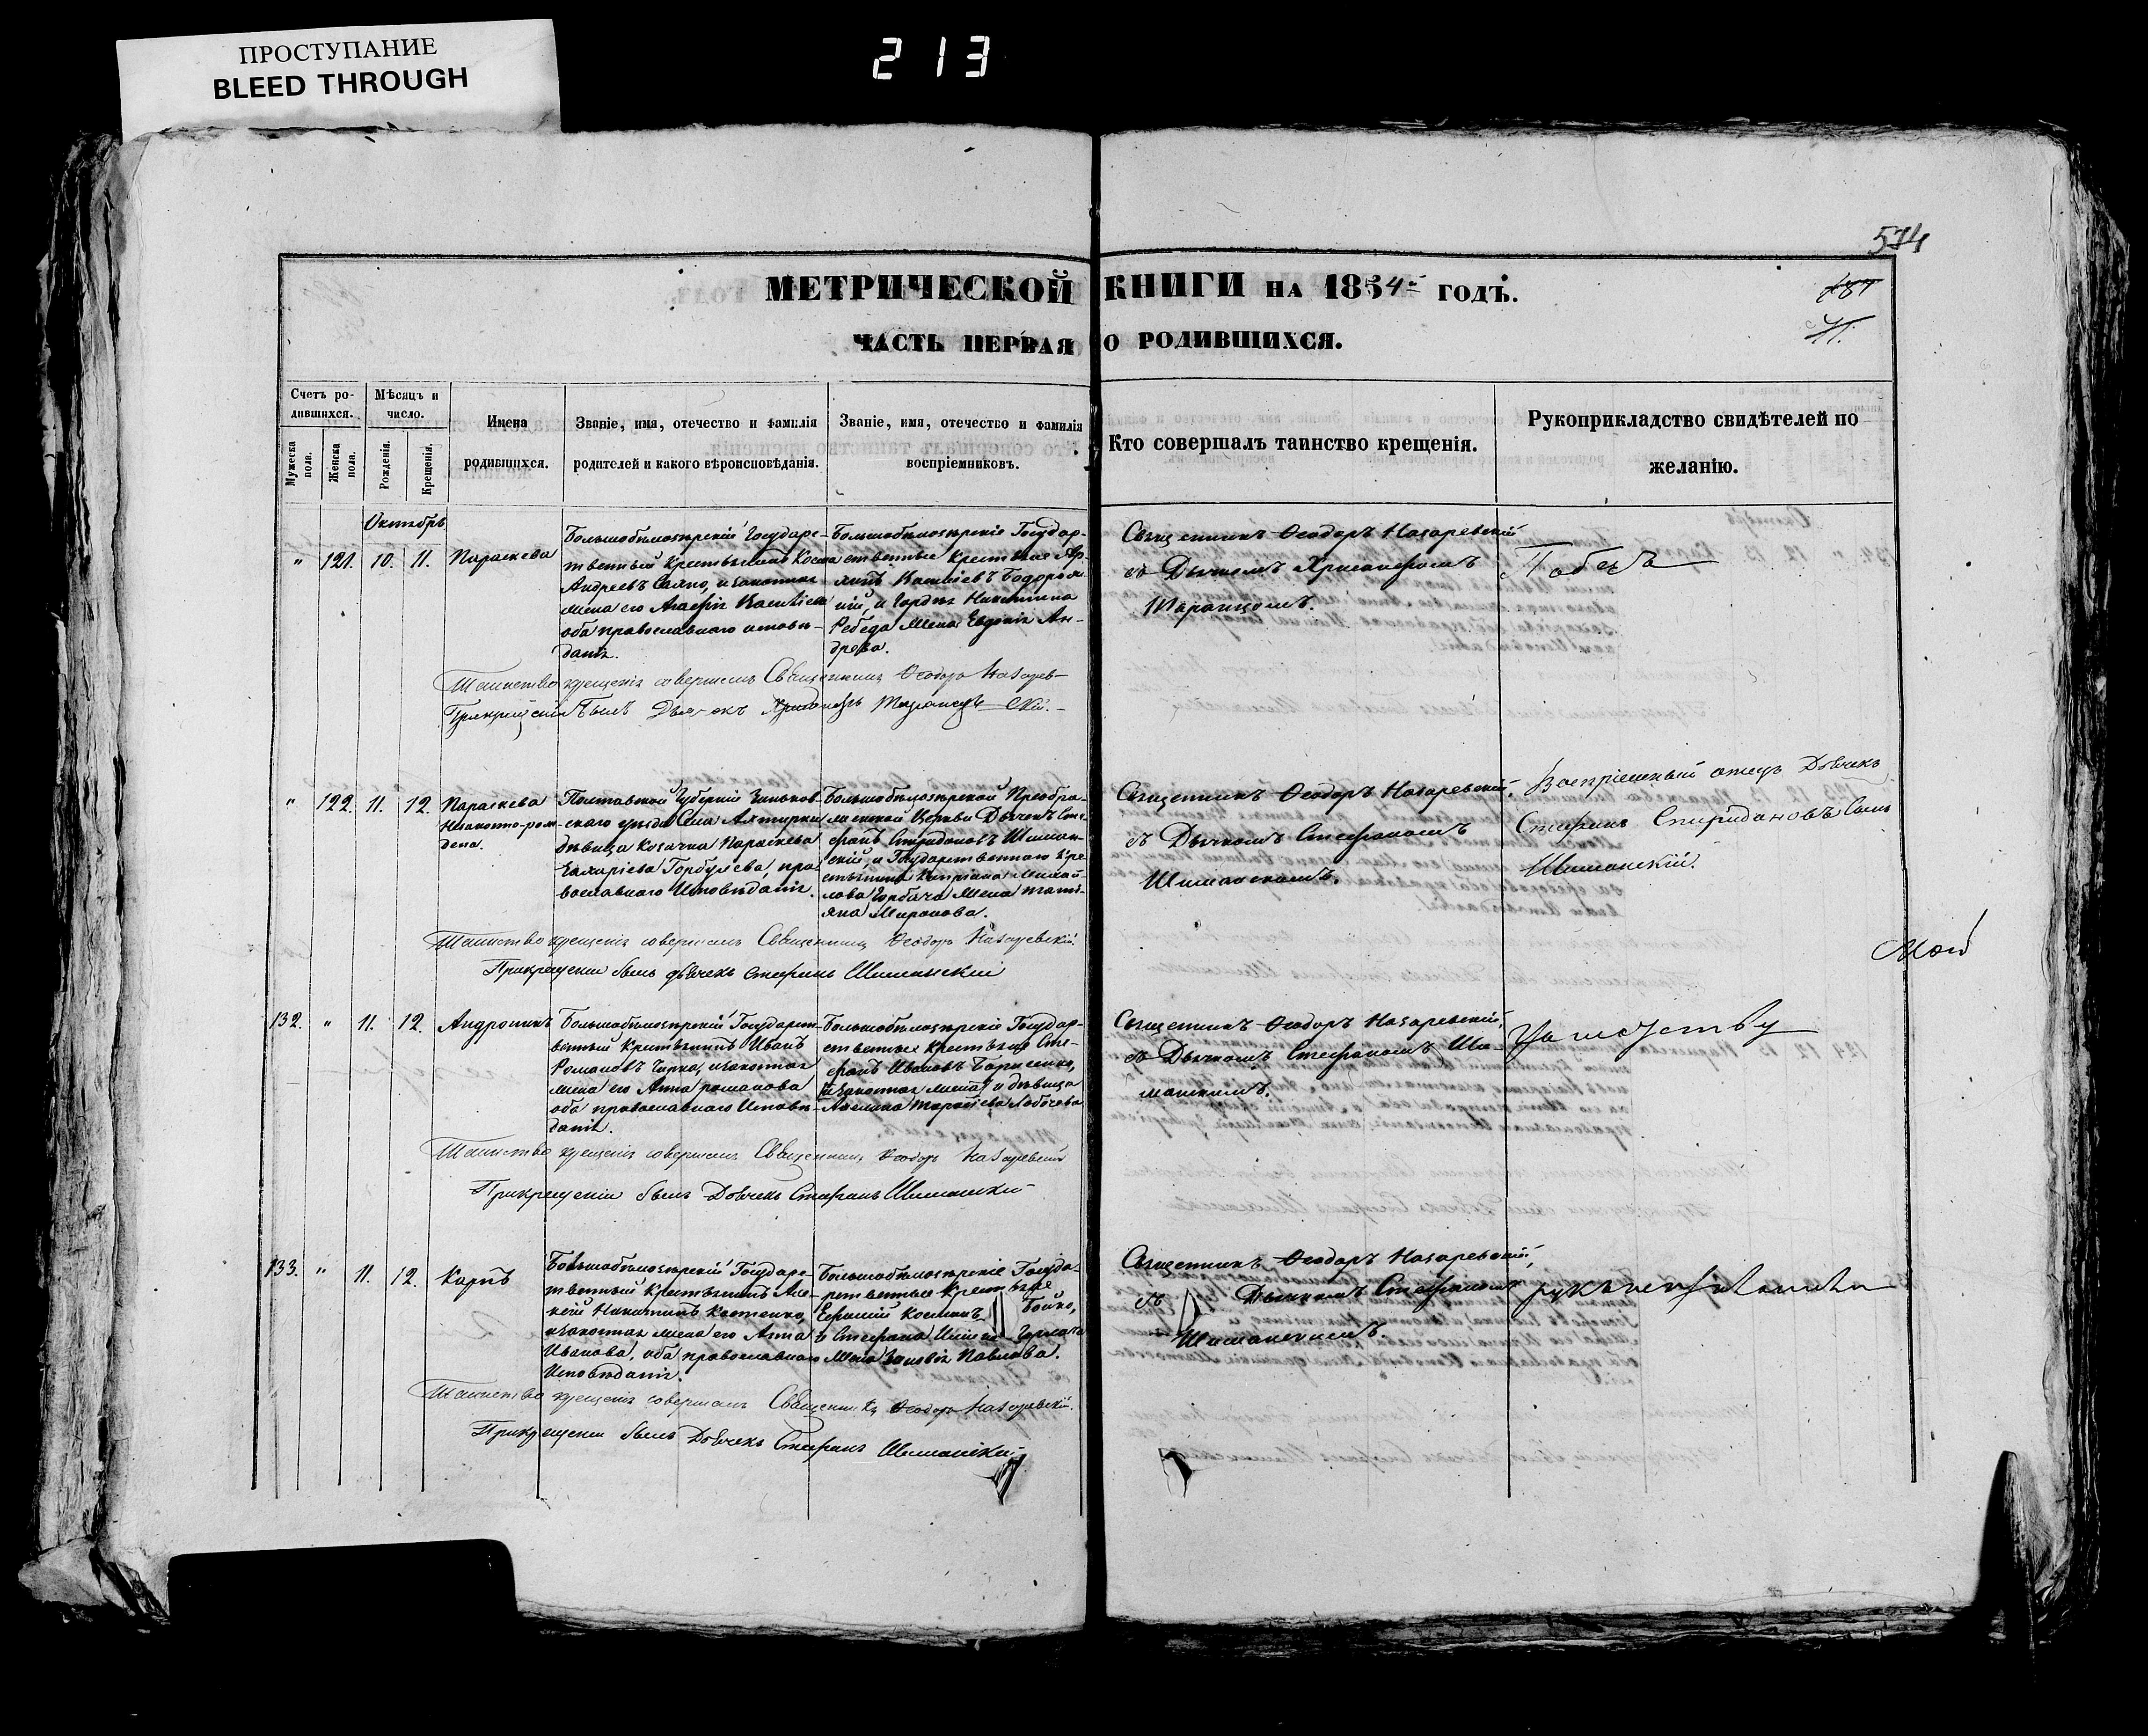 ПРОСТУПАНИЕ
BLEED THROUGH
213
574
МЕТРИЧЕСКОЙ КНИГИ НА 1854 ГОДЪ.
ЧАСТЬ ПЕРВАЯ О РОДИВШИХСЯ.
Счетъ ро-
дившихся.
Мужеска пола.
Женска пола.
Мѣсяцъ и
число.
Рожденія.
Крещенія.
Имена
родившихся.
Званіе, имя, отечество и фамилія
родителей и какого вѣроисповѣданія.
Званіе, имя, отечество и фамилія
воспріемниковъ.
Кто совершалъ таинство крещенія.
Рукоприкладство свидѣтелей по
желанію.
Октябрь
" 121. 10. 11. Параскева
Большобѣлозѣрскій Государс-
твенный Крестьянинъ Косма
Андреевъ и законная
жена его Агафія
оба православнаго исповѣ-
данія.
Большобѣлозѣрскіе Государ-
ственные Крестьяне
и Никитина
жена Евдокія Ан-
дреева.
Священникъ Ѳеодоръ Назаревскій
съ Дьячкомъ
Таинство крещенія совершалъ Священникъ Ѳеодоръ Назарев-
скій.
При крещеніи былъ
" 122. 11. 12. Параскева
Незаконно-рож-
дена.
Полтавской Губерніи Зиньков-
скаго уѣзда Села Ахтырки
дѣвица Козачка Параскева
пра-
вославнаго Исповѣданія.
Большобѣлозѣрской Преобра-
женской Церкви Дьячекъ Сте-
фанъ Спиридоновъ Шиман-
скій и Государственнаго Кре-
стьянина Кипріана Михай-
лова Горбача жена Тать-
яна Миронова.
Священникъ Ѳеодоръ Назаревскій,
съ Дьячкомъ Стефаномъ
Шиманскимъ.
Воспріемный отецъ Дьячекъ
Стефанъ Спиридоновъ Сынъ
Шиманскій.
Таинство крещенія совершалъ Священникъ Ѳеодоръ Назаревскій.
При крещеніи былъ дьячекъ Стефанъ Шиманскій
132. " 11. 12. Андроникъ
Большобѣлозѣрскій Государст-
венный Крестьянинъ Иванъ
Романовъ и законная
жена его Анна Романова
оба православнаго Исповѣ-
данія.
Большобѣлозѣрскіе Государ-
ственные Крестьяне Сте-
фанъ Ивановъ
и дѣвица
Священникъ Ѳеодоръ Назаревскій,
съ Дьячкомъ Стефаномъ Ши-
манскимъ.
Таинство крещенія совершалъ Священникъ Ѳеодоръ Назаревскій
При крещеніи былъ Дьячекъ Стефанъ Шиманскій
133. " 11. 12. Карпъ
Большобѣлозѣрскій Государс-
твенный Крестьянинъ Але-
ксій Никитинъ Костенко,
и законная жена его Анна
Иванова, оба православнаго
Исповѣданія.
Большобѣлозѣрскіе Госуда-
рственные Крестьяне
Бойко,
и Стефана
жена Зиновія Павлова.
Священникъ Ѳеодоръ Назаревскій,
съ Дьячкомъ Стефаномъ
Шиманскимъ.
Таинство крещенія совершалъ Священникъ Ѳеодоръ Назаревскій.
При крещеніи былъ Дьячекъ Стефанъ Шиманскій